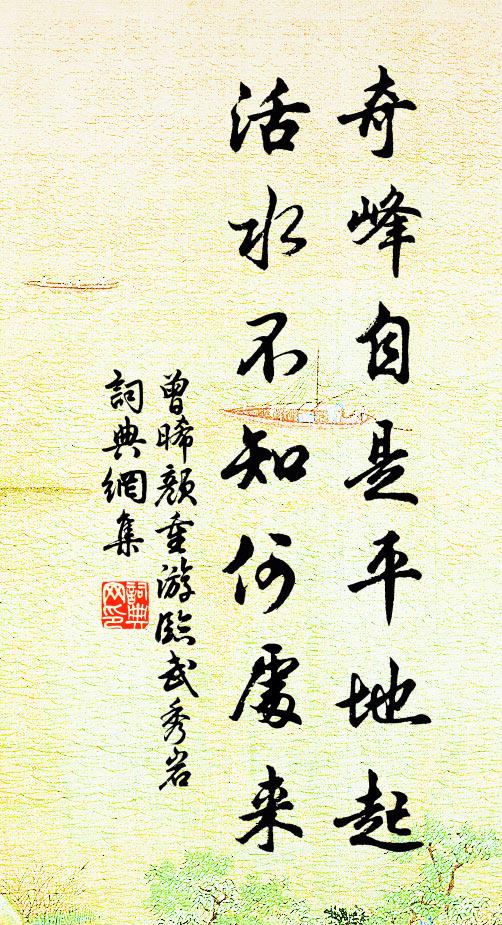 奇峰自是平地起
活水不知何處来
曾晞顏重游臨武秀岩
詞典網集
詞典
网印